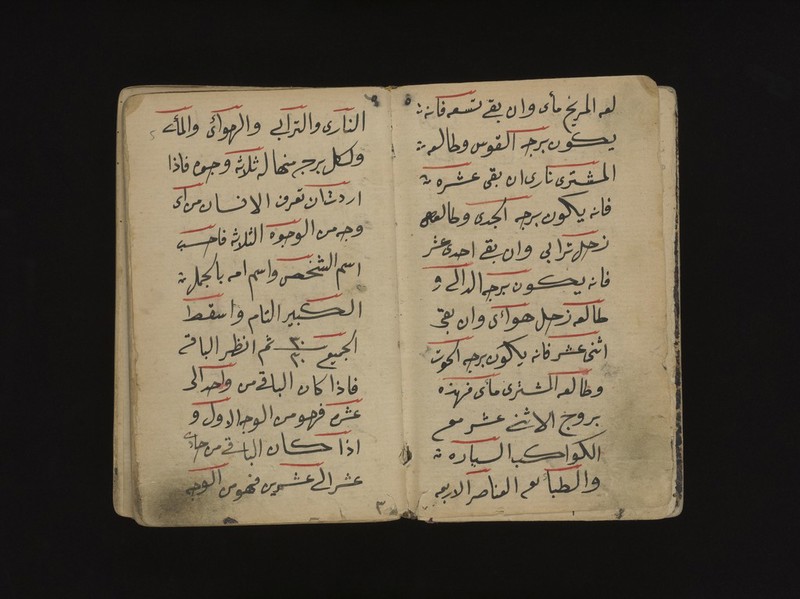 لعه المريخ مأى وان بقى تسعه فانه
يكون برجه القوس وطالعه
المشترى نارى ان بقى عشره
فانه يكون برجه الجدى وطالعه
زحل ترابى وان بقى احدى عشر
فانه يكون برجه الدالى و
طالعه زحل هوائى وان بقى
اثنى عشر فانه يكون برجه الحوت
وطالعه المشترى مأى فهذه
بروج الاثنى عشر مع
الكواكب السياره
والطبائع العناصر الاربعه
النارى والترابى والهوائى والمأى
ولكل برج منها له ثلاثة وجوه فاذا
اردت ان تعرف الانسان من اى
وجه من الوجوه الثلاثة فاحسب
اسم الشخص واسم امه بالجمل
الكبير التام واسقط
الجميع ٣٠ ٣٠ ثم انظر الباقى
فاذا كان الباقى من واحد الى
عشره فهو من الوجه الاول و
اذا كان الباقى من حادى
عشر الى عشرين فهو من الوجه